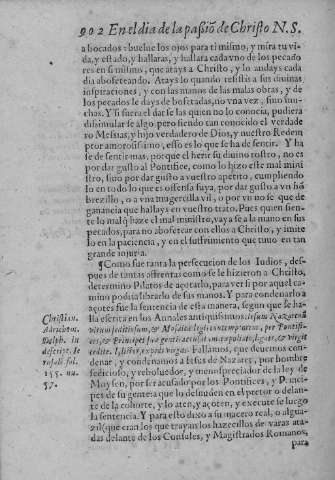 902 En el dia de la passiō de Christo N.S.
a bocados: buelue los ojos para ti mismo, y mira tu vi-
da, y estado, y hallaras, y hallara cada vno de los pecado
res en si mismo, que atays a Christo, y lo andays cada
dia abofeteando. Atays lo quando resistis a sus diuinas
inspiraciones, y con las manos de las malas obras, y de
los pecados le days de bofetadas, no vna vez, sino mu-
chas. Y si fuera el darselas quien no lo conocia, pudiera
dissimularse algo, pero siendo tan conocido el verdade
ro Messias, y hijo verdadero de Dios, y nuestro Redem
ptor amorosissimo, esso es lo que se ha de sentir. Y ha
se de sentir mas, porque el herir su diuino rostro, no es
por dar gusto al Pontifice, como lo hizo este mal mini
stro, sino por dar gusto a vuestro apetito, cumpliendo
lo en todo lo que es offensa suya, por dar gusto a vn hō
brezillo, o a vna mugercilla vil, o por vn no se que de
ganancia que hallays en vuestro trato. Pues quien sien-
te lo mal que haze el mal ministro, vaya se a la mano en sus
pecados, para no abofetear con ellos a Christo, y imite
lo en la paciencia, y en el suffrimiento que tuuo en tan
grande injuria.
¶Como fue tanta la persecucion de los Iudios, des-
pues de tantas affrentas como se le hizieron a Christo,
determino Pilatos de açotarlo, para ver si por aquel ca-
mino podria librarlo de sus manos. Y para condenarlo a
açotes fue la sentencia de esta manera, segun que se ha-
lla escrita en los Annales antiquissimos: Iesum Nazarenū
virum seditiosum, & Mosaicæ legis contemptorem, per Pontifi-
ces, & Principes suæ gentis accusatum, expoliato, ligate, & virgis
cedite. I, lictor, expedi virgas. Fallamos, que deuemos con-
denar, y condenamos a Iesus de Nazaret, por hombre
sedicioso, y reboluedor, y menospreciador de la ley de
Moysen, por ser acusado por los Pontifices, y Princi-
pes de su gente: a que lo desnuden en el pretor o delan-
te de la cohorte, y lo aten, y açoten, y execute se luego
la sentencia. Y para esto dixo a su macero real, o algua-
zil (que eran los que trayan los hazecillos de varas ata-
das delante de los Consules, y Magistrados Romanos,
para
Christian.
Adrichom.
Delph. in
descript. Ie
rusali fol.
155. nu.
57.